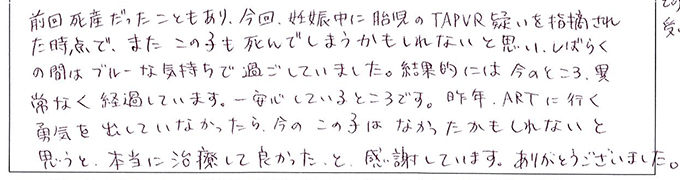 前回死産だったこともあり、今回、妊娠中に胎児のTAPVR疑いを指摘され
た時点で、またこの子も死んでしまうかもしれないと思い、しばらく
の間はブルーな気持ちで過ごしていました。結果的には今のところ、異
常なく経過しています。一安心しているところです。昨年、ARTに行く
勇気を出していなかったら、今のこの子はなかったかもしれないと
思うと、本当に治療して良かった、と、感謝しています。ありがとうございました。